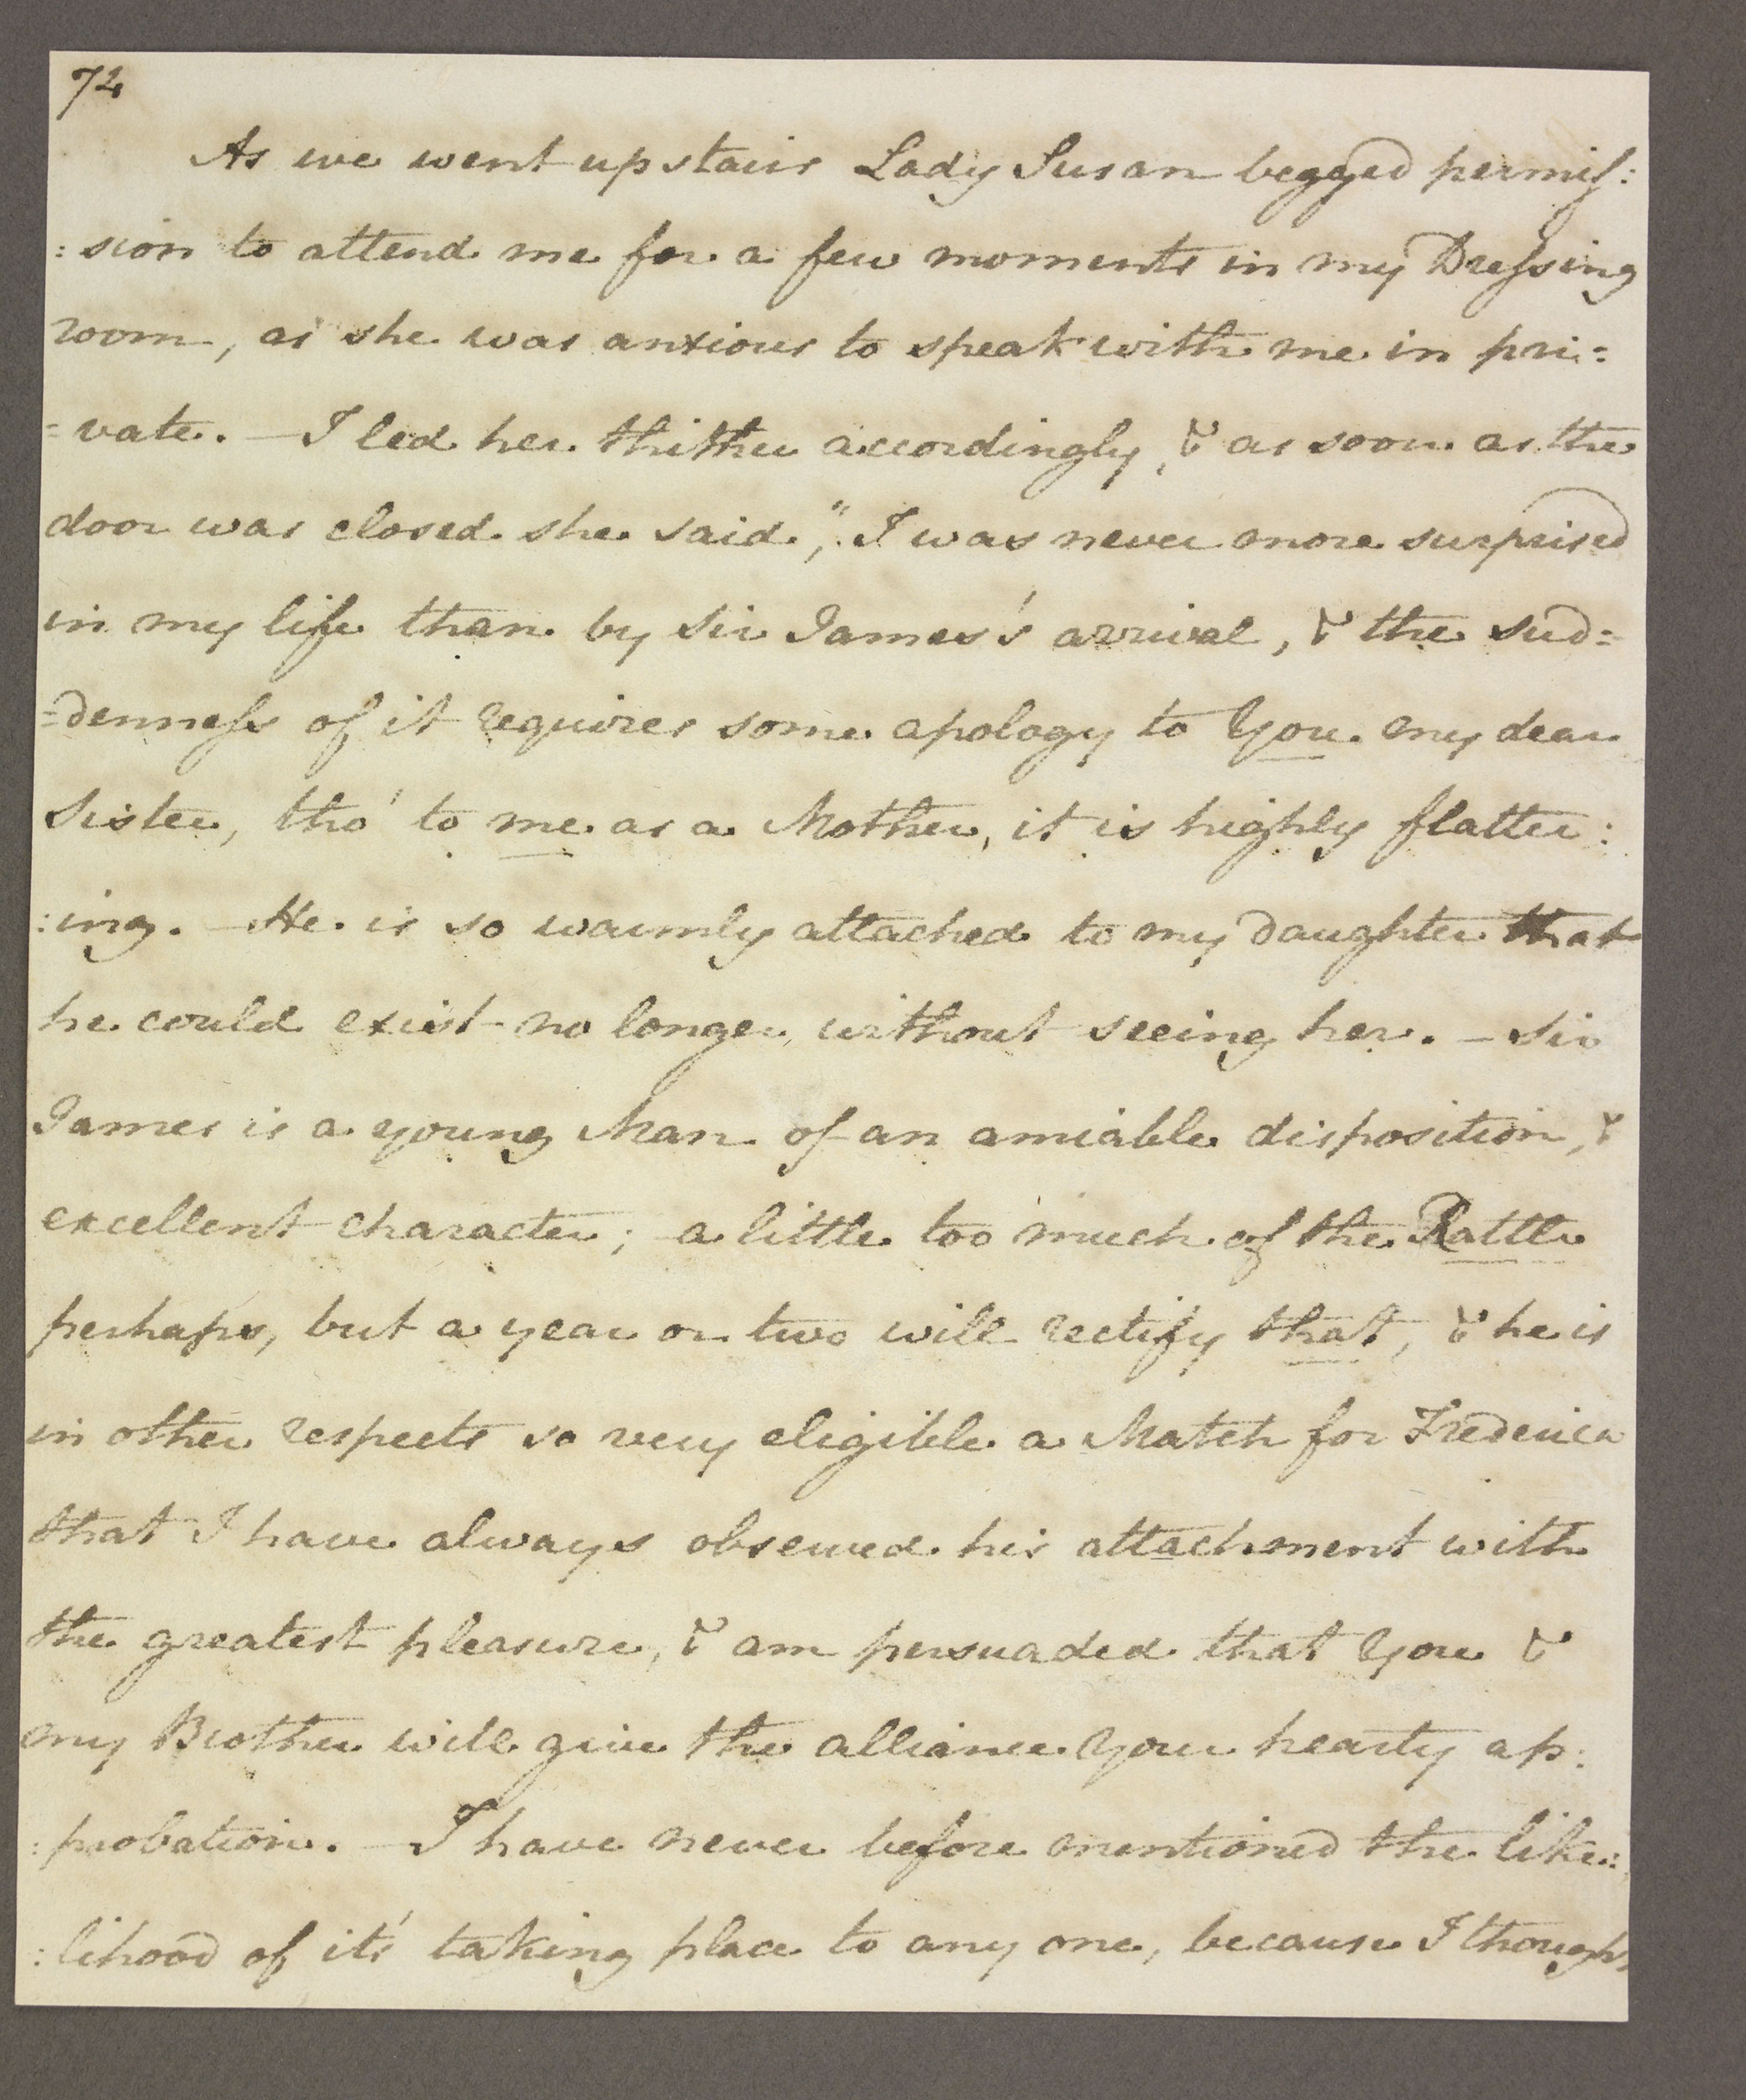 72
As we went up stairs Lady Susan begged permis:
:sion to attend me for a few moments in my Dressing
room, as she was anxious to speak with me in pri=
=vate. — I led her thither accordingly, & as soon as the
door was closed she said, "I was never more surprised
in my life than by Sir James's arrival, & the sud=
=denness of it requires some apology to You my dear
Sister, tho' to me as a Mother, it is highly flatter:
:ing. — He is so warmly attached to my daughter that
he could exist no longer without seeing her. — Sir
James is a young Man of an amiable disposition, &
excellent character; a little too much of the Rattle
perhaps, but a year or two will rectify that, & he is
in other respects so very eligible a Match for Frederica
that I have always observed his attachment with
the greatest pleasure, & am persuaded that You &
my Brother will give the alliance Your hearty ap:
:probation. — I have never before mentioned the like:
:lihood of it's taking place to any one, because I thought